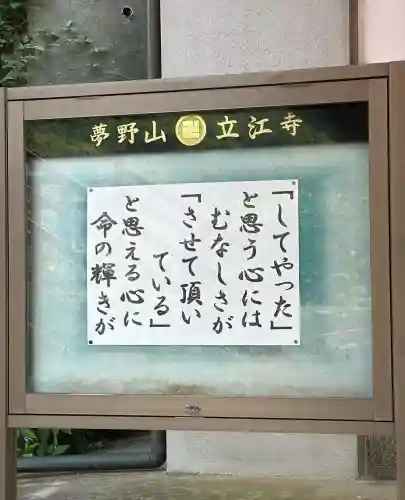 夢野山 卍 立江寺
「してやった」
と思う心には
むなしさが
「させて頂い
ている」
と思える心に
命の輝きが